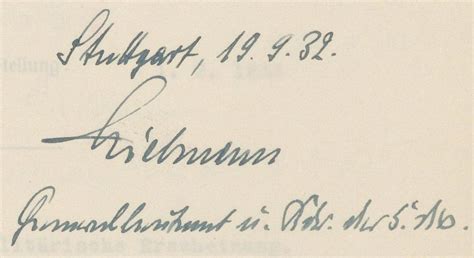 Stuttgart, 19.9.32.
tellung
Liebmann
Generalleutnant u. Kdr. der 5. Div.
litärische Erscheinung.